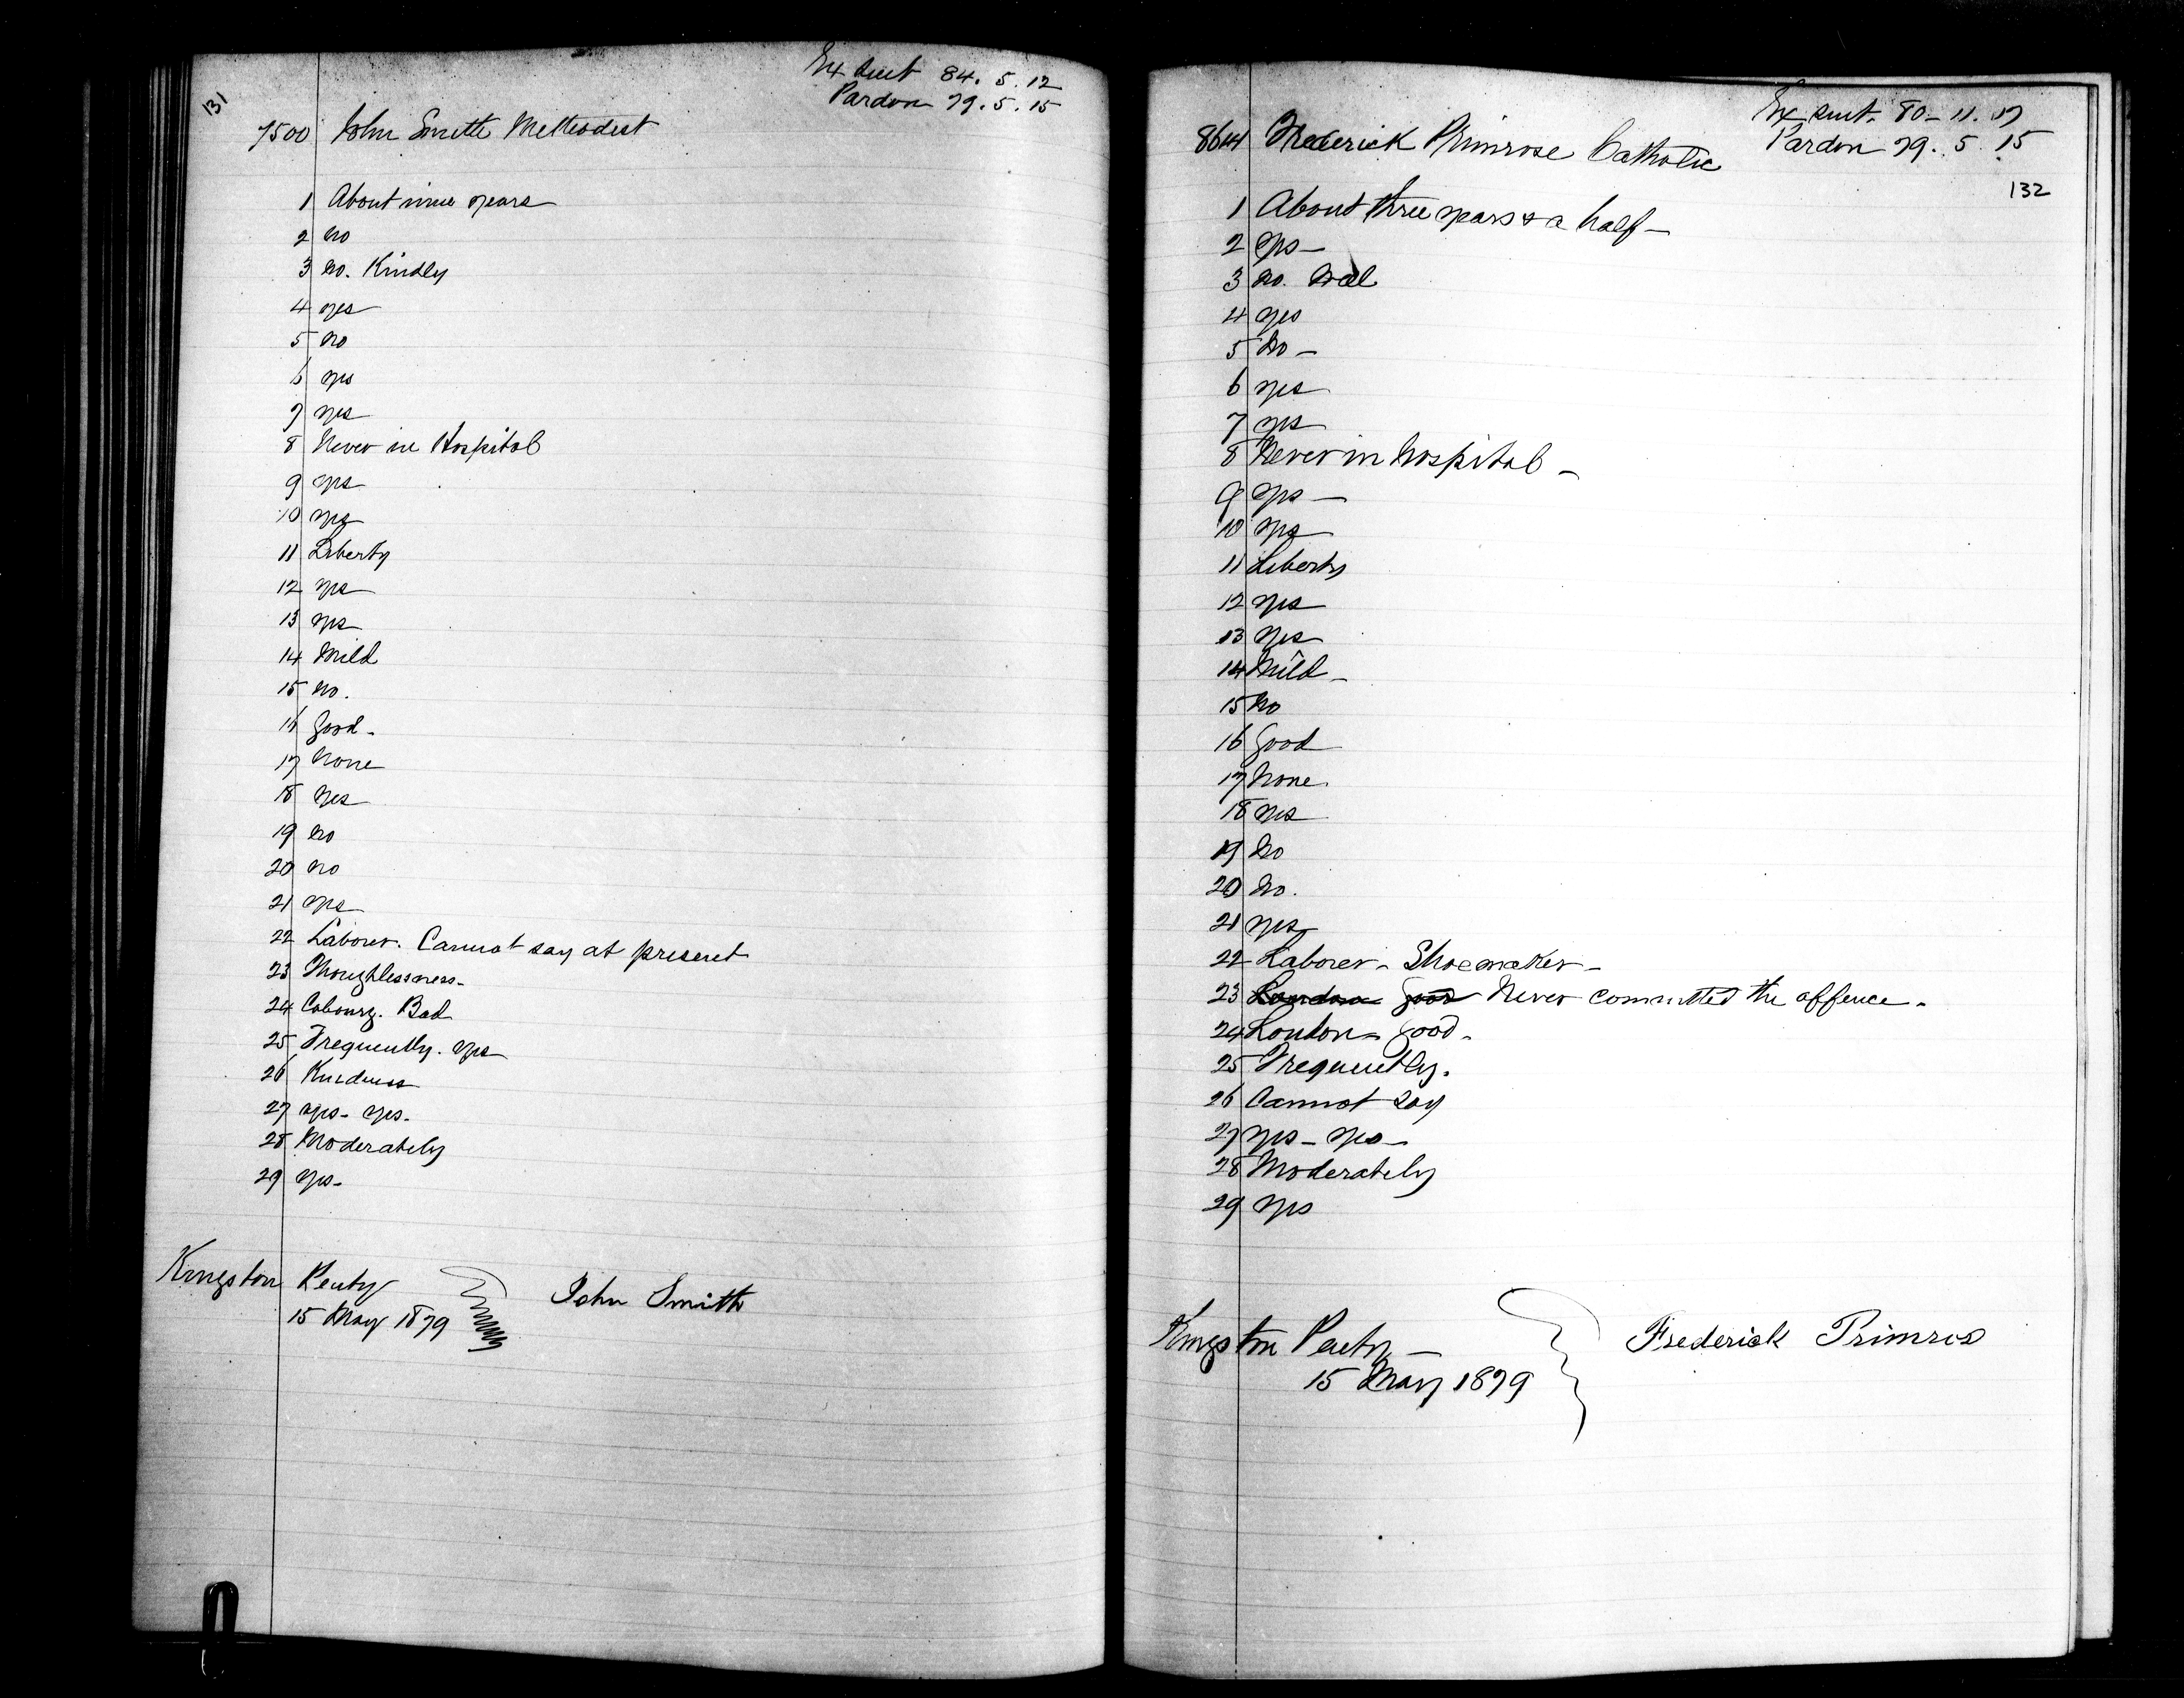 131
Ex Sent 84. 5. 12
Pardon 79. 5. 15
7500 John Smith Methodist
1 About nine years
2 No
3 No. Kindly
4 yes
5 No
6 yes
7 yes
8 Never in Hospital
9 yes
10 yes
11 Liberty
12 yes
13 yes
14 Mild
15 No.
16 Good -
17 None
18 Yes
19 No
20 No
21 yes
22 Laborer. Cannot say at present
23 Thoughlessness-
24 Cobourg. Bad
25 Frequently. yes
26 Kindness
27 yes- yes-
28 Moderately
29 yes-
Kingston Penty
15 May 1879
John Smith
Ex Sent. 80- 11. 17
Pardon 79. 5. 15
132
8644 Frederick Primrose Catholic
1 About three years & a half -
2 yes -
3 No. Well
4 yes
5 No -
6 yes
7 yes
8 Never in hospital -
9 yes -
10 yes
11 Liberty
12 yes
13 yes
14 Mild -
15 No
16 Good
17 None.
18 yes
19 No
20 No.
21 yes
22 Laborer - Shoemaker -
23 London Good Never committed the offence -
24 London - Good -
25 Frequently.
26 Cannot say
27 yes - yes -
28 Moderately
29 yes
Kingston Penty -
15 May 1879
Frederick Primros